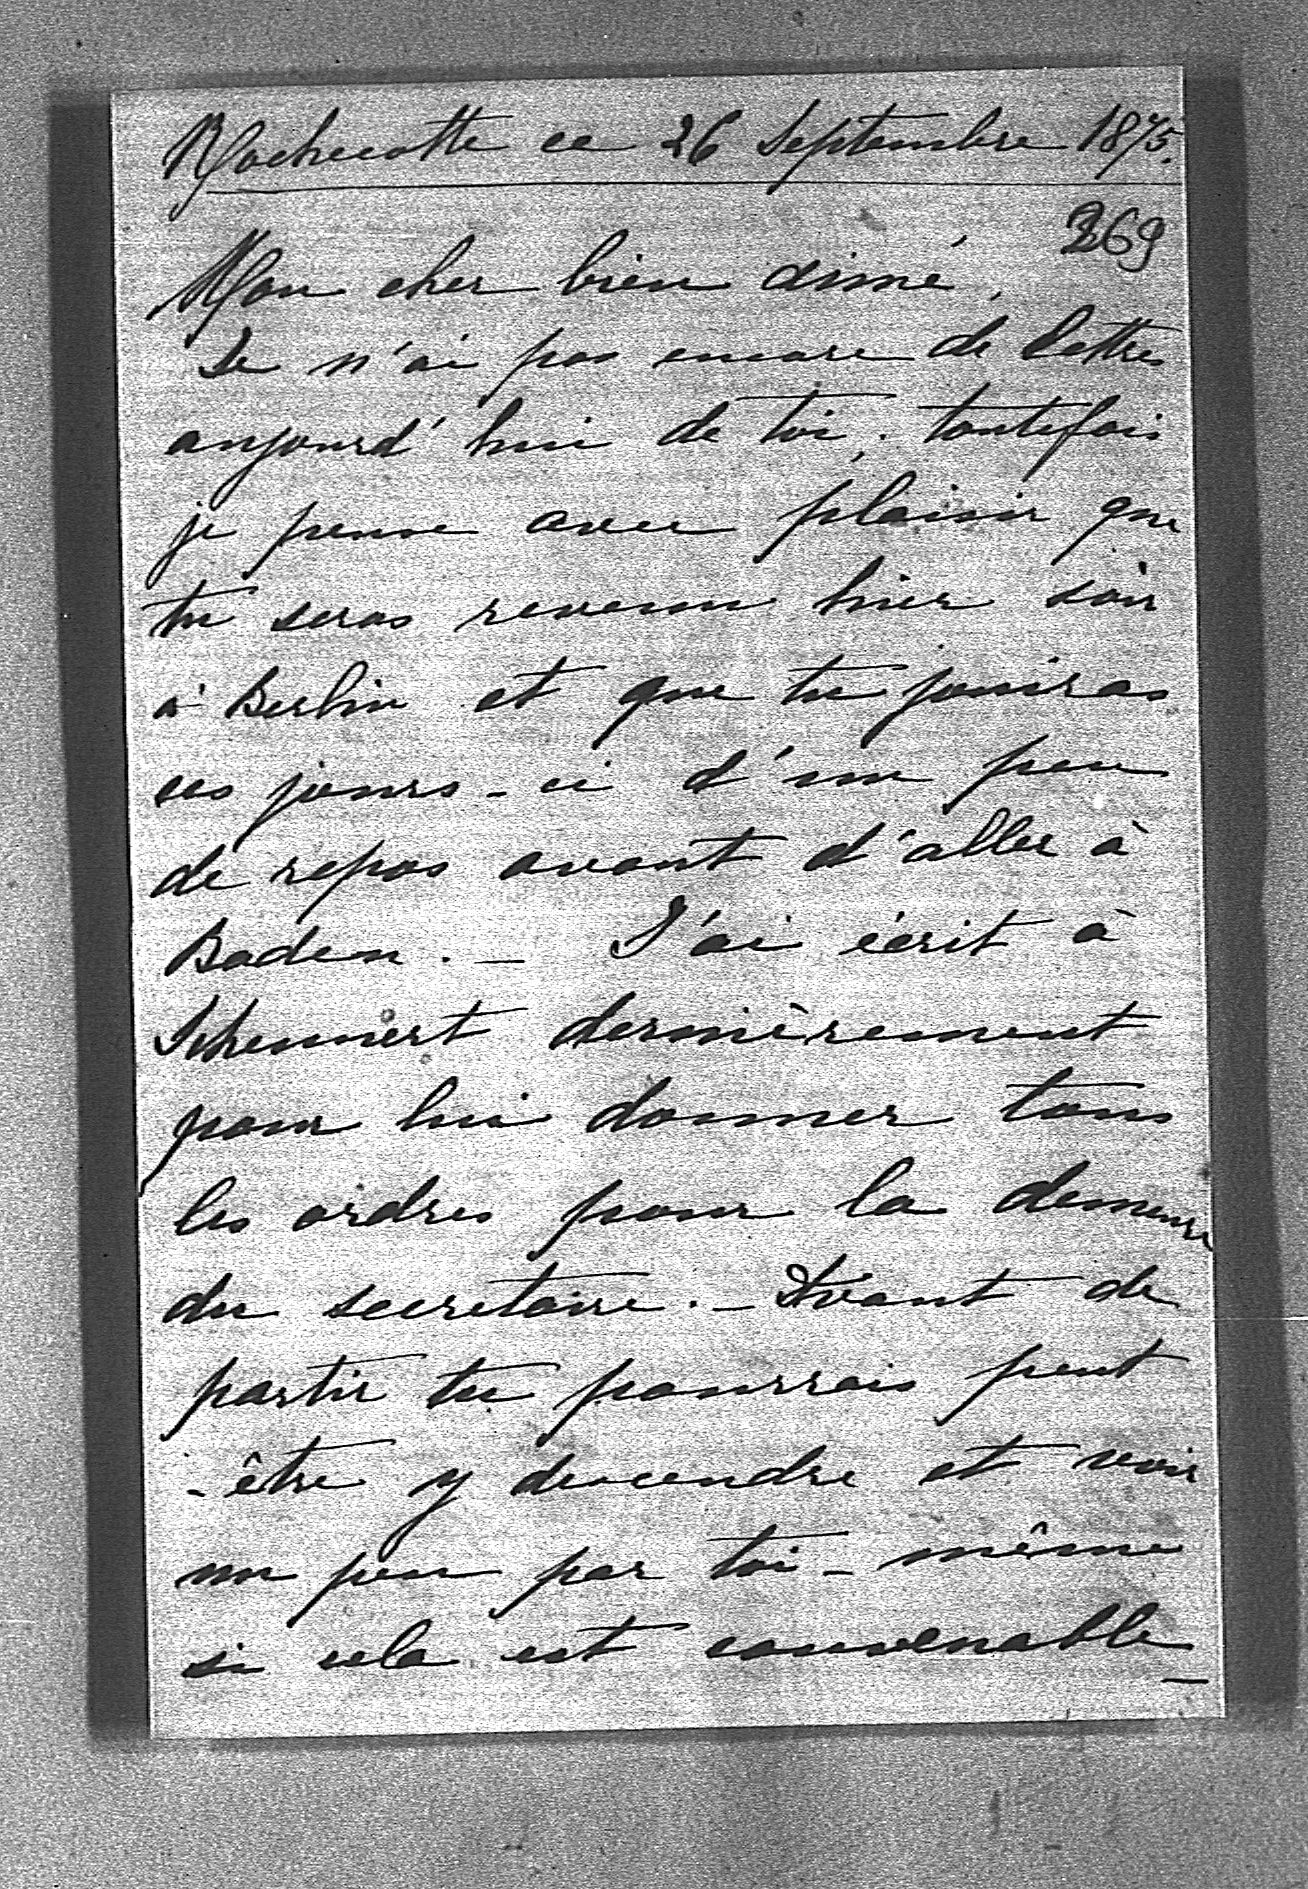 Rochecotte ce 26 Septembre 1875.
269
Mon cher bien aimé,
Je n'ai pas encore de lettres
aujourd'hui de toi, toutefois
je pense avec plaisir que
tu seras revenu hier soir
à Berlin et que tu jouiras
ces jours-ci d'un peu
de repos avant d'aller à
Baden. — J'ai écrit à
dernièrement
pour lui donner tous
les ordres pour la demeure
du secretaire. — Avant de
partir tu pourrais peut
-être y descendre et voir
un peu par toi-même
si cela est convenable —